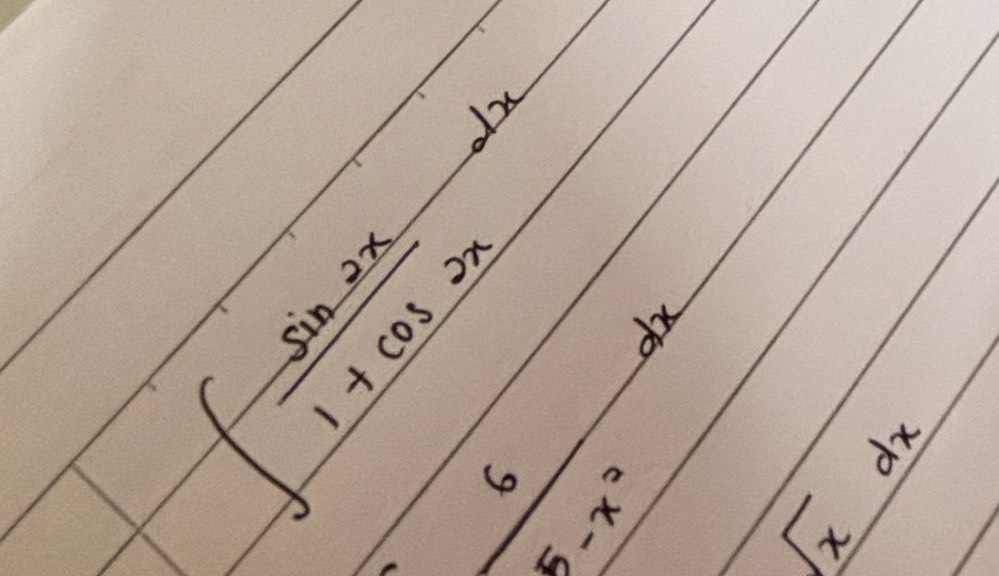 ∫ sin 2x / 1 + cos 2x dx
6 / 5 - x² dx
√x dx